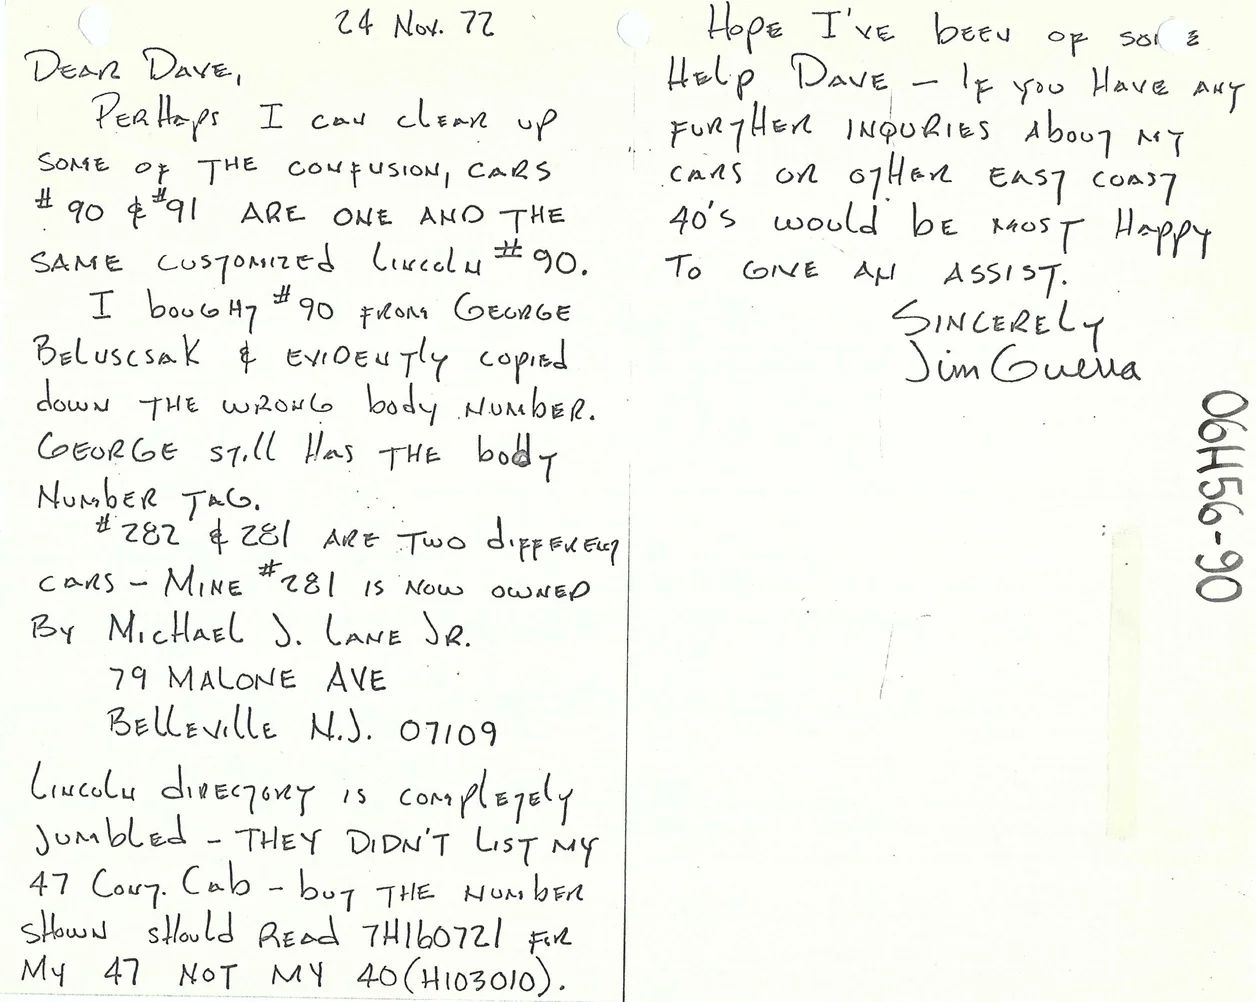 24 Nov. 72
Dear Dave,
Perhaps I can clear up
some of the confusion, cars
#90 & #91 are one and the
same customized Lincoln #90.
I bought #90 from George
Beluscsak & evidently copied
down the wrong body number.
George still has the body
number tag.
#282 & 281 are two different
cars – Mine #281 is now owned
By Michael J. Lane Jr.
79 Malone Ave
Belleville N.J. 07109
Lincoln directory is completely
jumbled – they didn't list my
47 Conv. Cab – but the number
shown should read 7H160721 for
my 47 not my 40 (H103010).
Hope I've been of some
help Dave – If you have any
further inquries about my
cars or other east coast
40's would be most happy
to give an assist.
Sincerely
Jim Guerra
06H56-90